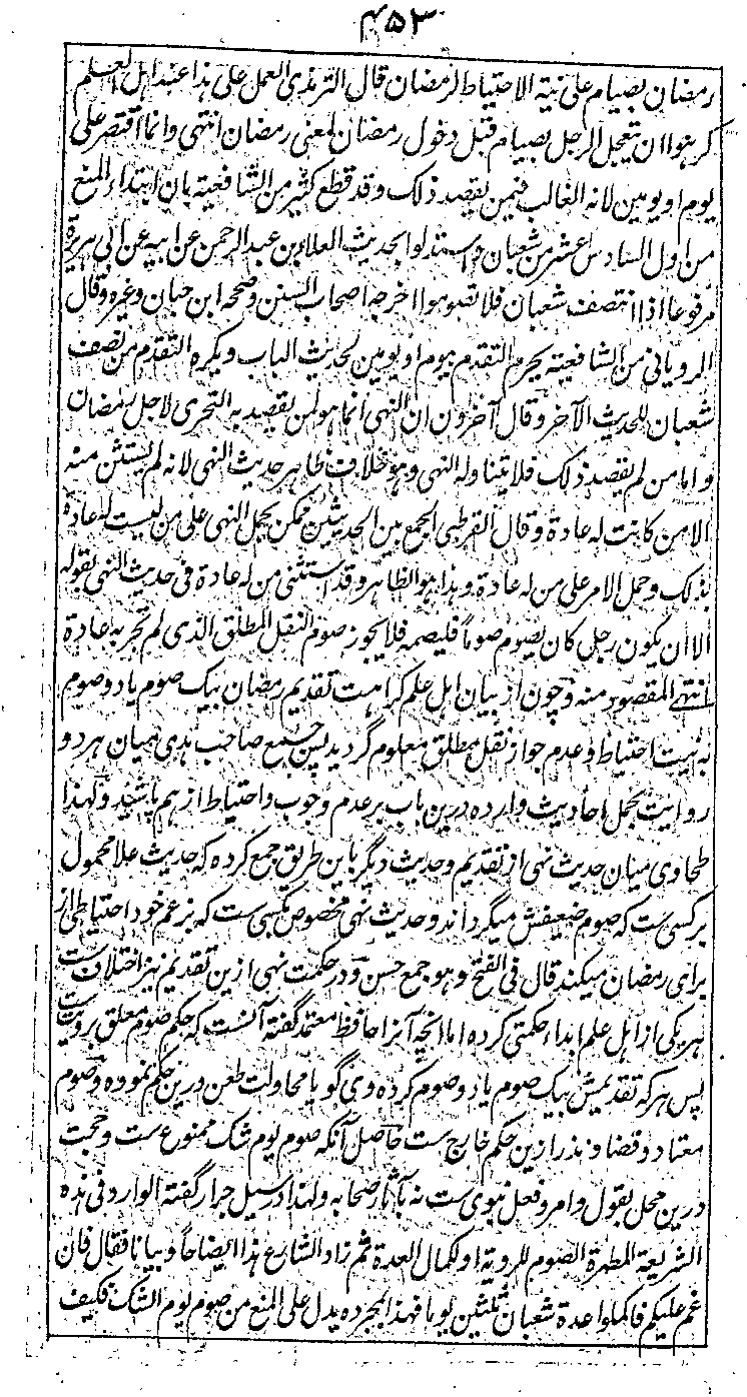 ۴۵۳
رمضان بصیام علی نیة الاحتیاط لرمضان قال الترمذی العمل علی هذا عند اهل العلم
کرهوا ان یتعجل الرجل بصیام قبل دخول رمضان لمعنی رمضان انتهی وانما اقتصر علی
یوم او یومین لانه الغالب فیمن یقصد ذلک وقد قطع کثیر من الشافعیة بان ابتداء المنع
من اول السادس عشر من شعبان واستدلوا بحدیث العلاء بن عبد الرحمن عن ابیه عن ابی هریرة
مرفوعا اذا انتصف شعبان فلا تصوموا اخرجه اصحاب السنن وصححه ابن حبان وغیره وقال
الرویانی من الشافعیة یحرم التقدم بیوم او یومین لحدیث الباب ویکره التقدم من نصف
شعبان للحدیث الآخر وقال آخرون ان النهی انما هو لمن یقصد به التحری لاجل رمضان
واما من لم یقصد ذلک فلا یتناوله النهی وهو خلاف ظاهر حدیث النهی لانه لم یستثن منه
الا من کانت له عادة وقال القرطبی الجمع بین الحدیثین ممکن بحمل النهی علی من لیست له عادة
بذلک وحمل الامر علی من له عادة وهذا هو الظاهر وقد استثنی من له عادة فی حدیث النهی بقوله
الا ان یکون رجل کان یصوم صوما فلیصمه فلا یجوز صوم النفل المطلق الذی لم تجر به عادة
انتهے المقصود منه وچون از بیان اهل علم کراهت تقدیم رمضان بیک صوم یا دو صوم
به نیت احتیاط وعدم جواز نفل مطلق معلوم گردید پس صنیع صاحب هدی میان هر دو
روایت بحمل احادیث وارده درین باب بر عدم وجوب واحتیاط از هم پاشید ولهذا
طحاوی میان حدیث نهی از تقدیم وحدیث دیگر باین طریق جمع کرده که حدیث علا محمول
بر کسی ست که صوم ضعیفش میگرداند وحدیث نهی مخصوص بکسی ست که بزعم خود احتیاطی از
برای رمضان میکند قال فی الفتح وهو جمع حسن ودر حکمت نهی ازین تقدیم نیز اختلاف ست
هر یکی از اهل علم ابداء حکمتی کرده اما انچه آنرا حافظ معتمد گفته آنست که حکم صوم معلق برویت ست
پس هر که تقدیمش بیک صوم یا دو صوم کرده وی گویا محاولت طعن درین حکم نموده وصوم
معتاد وقضا ونذر ازین حکم خارج ست حاصل آنکه صوم یوم شک ممنوع ست وحجت
درین محل بقول وامر وفعل نبوی ست نه بآثار صحابه ولهذا در سیل جرار گفته الوارد فی هذه
الشریعة المطهرة الصوم للرویة او لکمال العدة ثم زاد الشارع هذا ایضاحا وبیانا فقال فان
غم علیکم فاکملوا عدة شعبان ثلثین یوما فهذا بمجرده یدل علی المنع من صوم یوم الشک فکیف